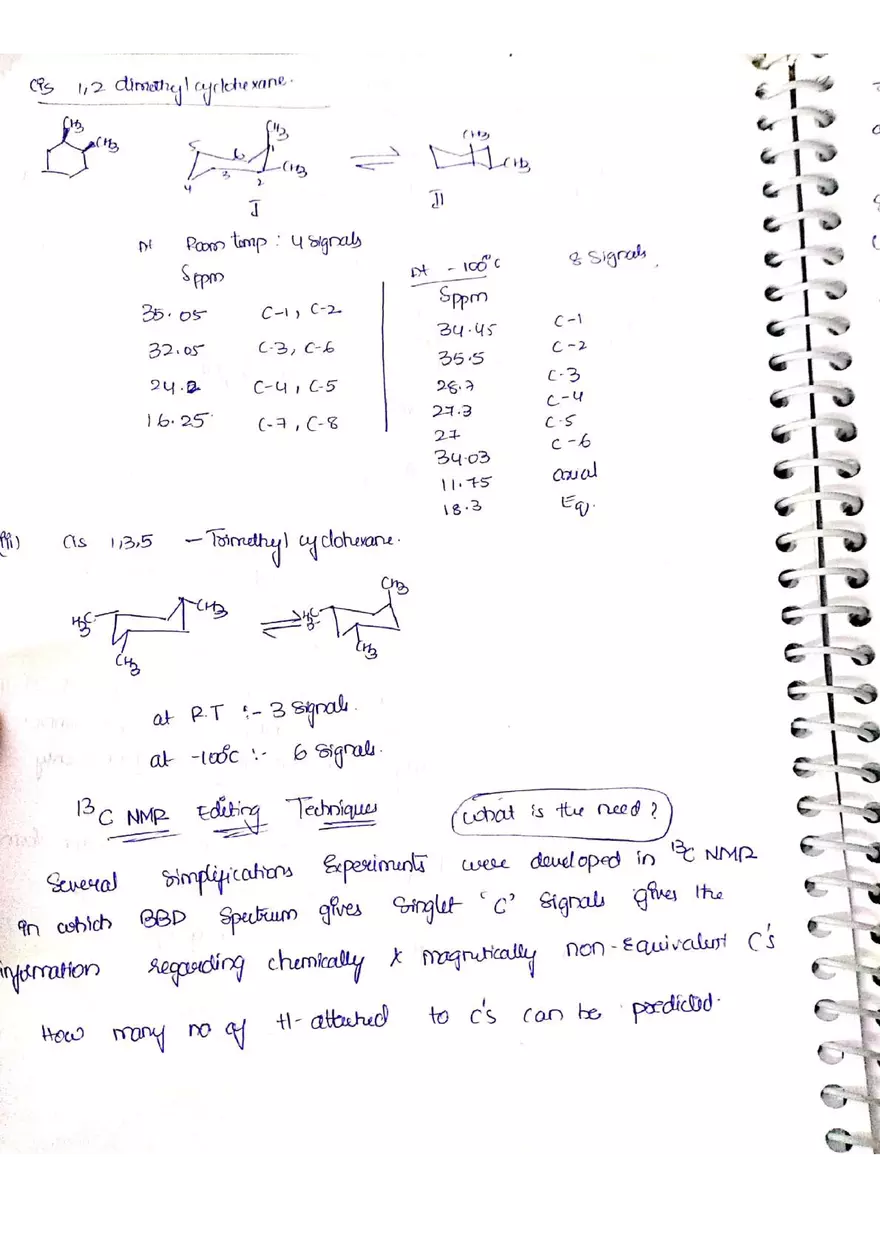 cis 1,2 dimethyl cyclohexane.
CH3
CH3
CH3
5
6
1
CH3
4
3
2
I
CH3
CH3
II
At Room temp : 4 signals
δppm
35.05 C-1, C-2
32.05 C-3, C-6
24.2 C-4, C-5
16.25 C-7, C-8
At -100°C 8 Signals.
δppm
34.45 C-1
35.5 C-2
28.7 C-3
27.3 C-4
27 C-5
34.03 C-6
11.75 axial
18.3 Eq.
iii) Cis 1,3,5 - Trimethyl cyclohexane.
H3C
CH3
CH3
H3C
CH3
CH3
at R.T :- 3 signals.
at -100°C :- 6 signals.
13C NMR Editing Techniques
What is the need?
Several simplifications Experiments were developed in 13C NMR
in which BBD Spectrum gives Singlet 'C' Signals gives the
information regarding chemically & magnetically non-Equivalent C's
How many no of H-attached to C's can be predicted.